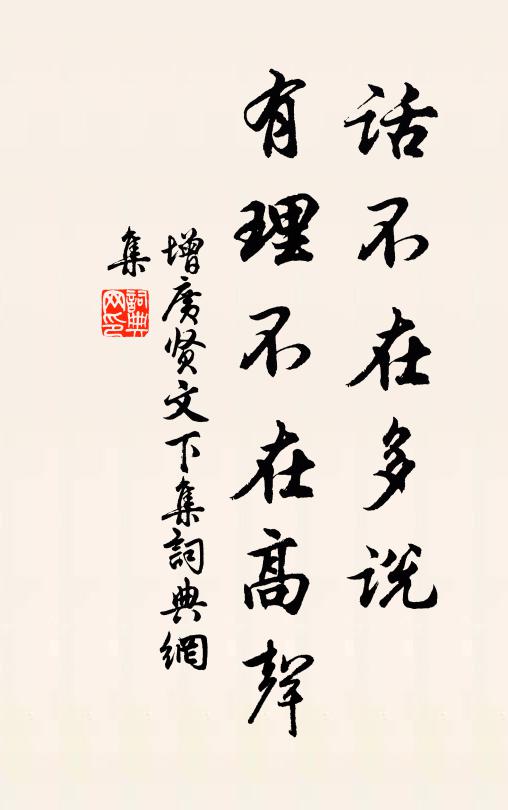 话不在多说
有理不在高聲
增广贤文下集詞典網
集
詞典网印